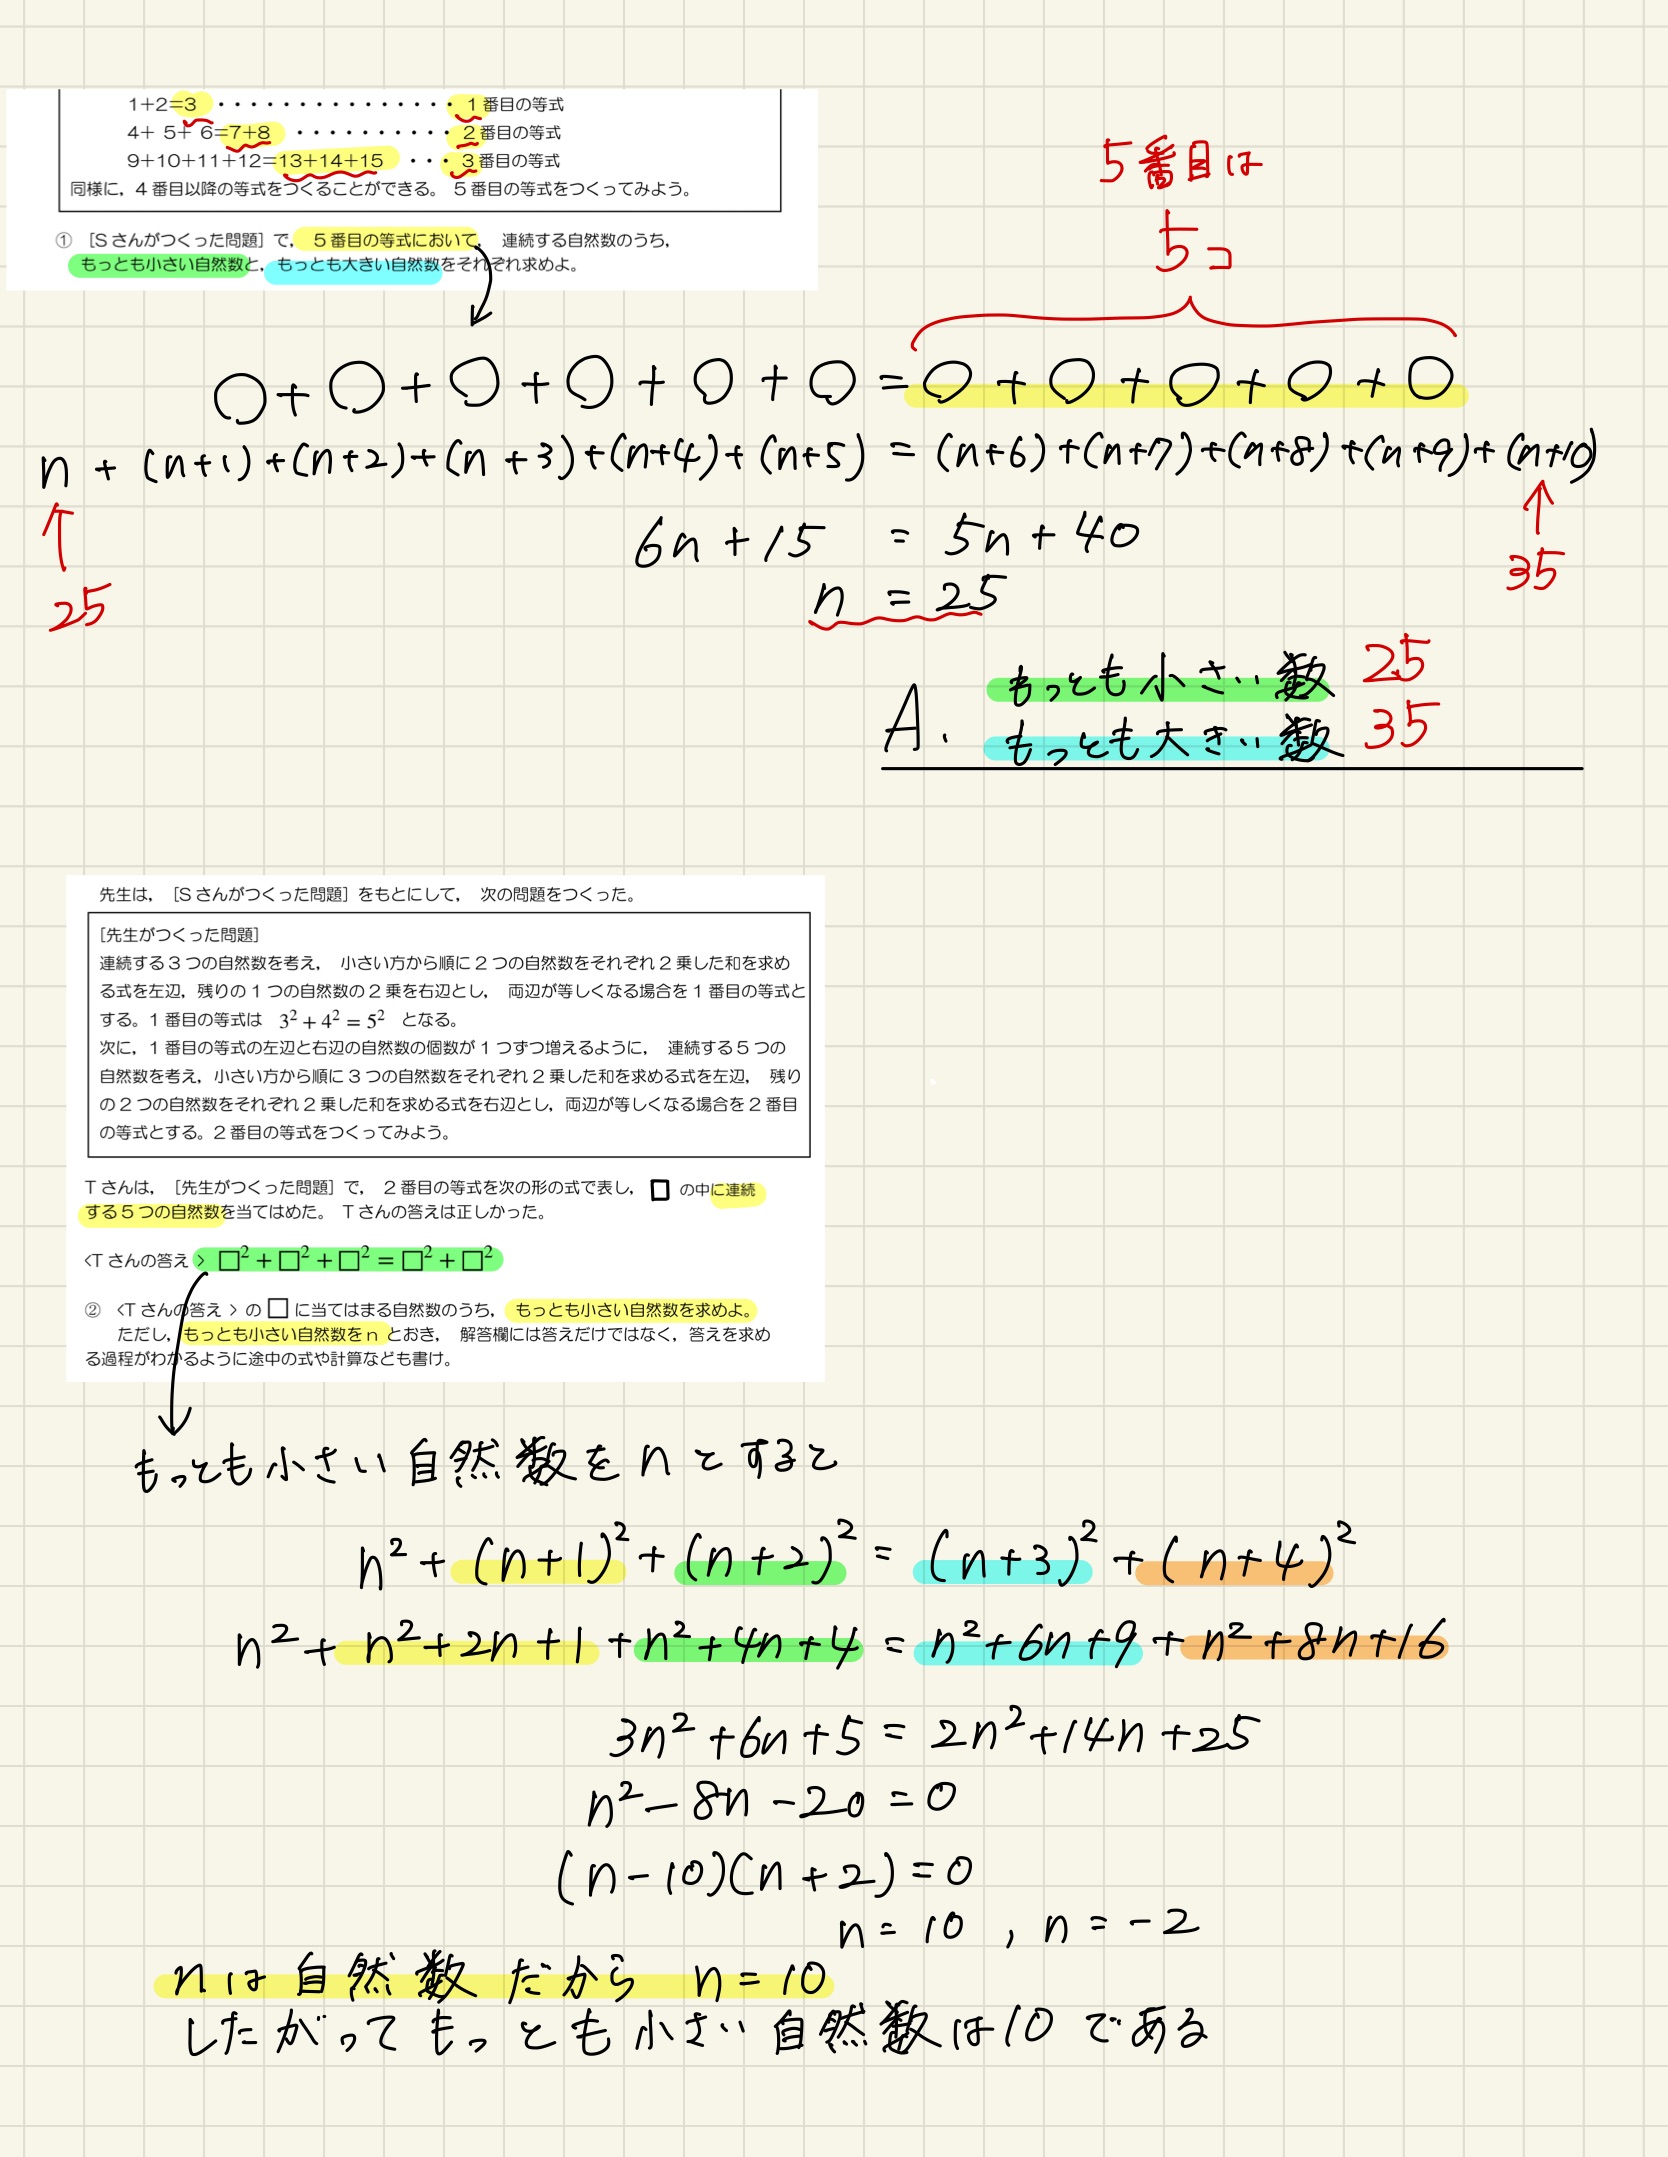 1+2=3 ・・・・・・・・・・・・・・・ 1番目の等式
4+ 5+ 6=7+8 ・・・・・・・・・・ 2番目の等式
9+10+11+12=13+14+15 ・・・ 3番目の等式
同様に，4番目以降の等式をつくることができる。 5番目の等式をつくってみよう。
① ［Sさんがつくった問題］で， 5番目の等式において， 連続する自然数のうち，
もっとも小さい自然数と，もっとも大きい自然数をそれぞれ求めよ。
5番目は
5コ
○+○+○+○+○+○=○+○+○+○+○
n+(n+1)+(n+2)+(n+3)+(n+4)+(n+5)=(n+6)+(n+7)+(n+8)+(n+9)+(n+10)
↑ ↑
25 35
6n+15 = 5n+40
n = 25
A. もっとも小さい数 25
もっとも大きい数 35
先生は， ［Sさんがつくった問題］をもとにして， 次の問題をつくった。
［先生がつくった問題］
連続する3つの自然数を考え， 小さい方から順に2つの自然数をそれぞれ2乗した和を求め
る式を左辺，残りの1つの自然数の2乗を右辺とし， 両辺が等しくなる場合を1番目の等式と
する。1番目の等式は 3²+4²=5² となる。
次に，1番目の等式の左辺と右辺の自然数の個数が1つずつ増えるように， 連続する5つの
自然数を考え，小さい方から順に3つの自然数をそれぞれ2乗した和を求める式を左辺， 残り
の2つの自然数をそれぞれ2乗した和を求める式を右辺とし，両辺が等しくなる場合を2番目
の等式とする。2番目の等式をつくってみよう。
Tさんは， ［先生がつくった問題］で， 2番目の等式を次の形の式で表し， □ の中に連続
する5つの自然数を当てはめた。 Tさんの答えは正しかった。
〈Tさんの答え〉 □²+□²+□²=□²+□²
② 〈Tさんの答え〉の □ に当てはまる自然数のうち， もっとも小さい自然数を求めよ。
ただし，もっとも小さい自然数をnとおき， 解答欄には答えだけではなく，答えを求め
る過程がわかるように途中の式や計算なども書け。
もっとも小さい自然数をnとすると
n²+(n+1)²+(n+2)²=(n+3)²+(n+4)²
n²+n²+2n+1+n²+4n+4=n²+6n+9+n²+8n+16
3n²+6n+5=2n²+14n+25
n²-8n-20=0
(n-10)(n+2)=0
n=10 , n=-2
nは自然数だから n=10
したがって もっとも小さい自然数は10である